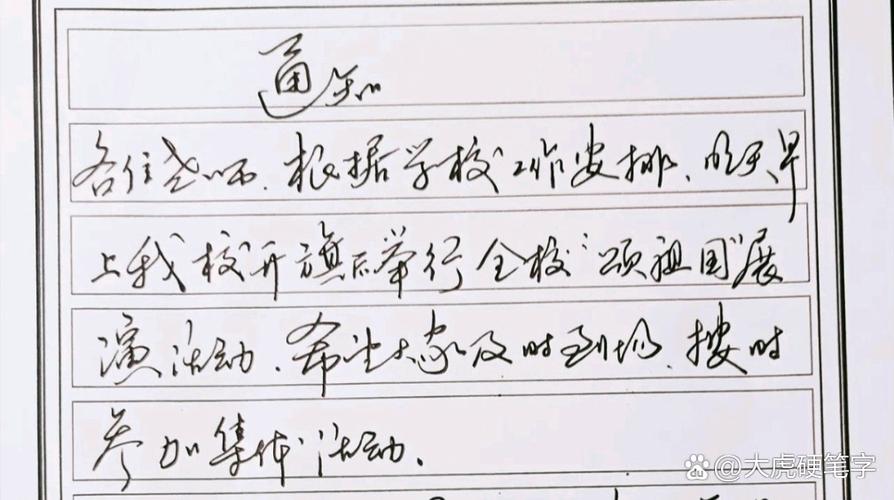 通知
各位老师、根据学校工作安排、明天早
上我校升旗后举行全校“颂祖国”展
演活动、希望大家及时到场、按时
参加集体活动.
@大虎硬笔字